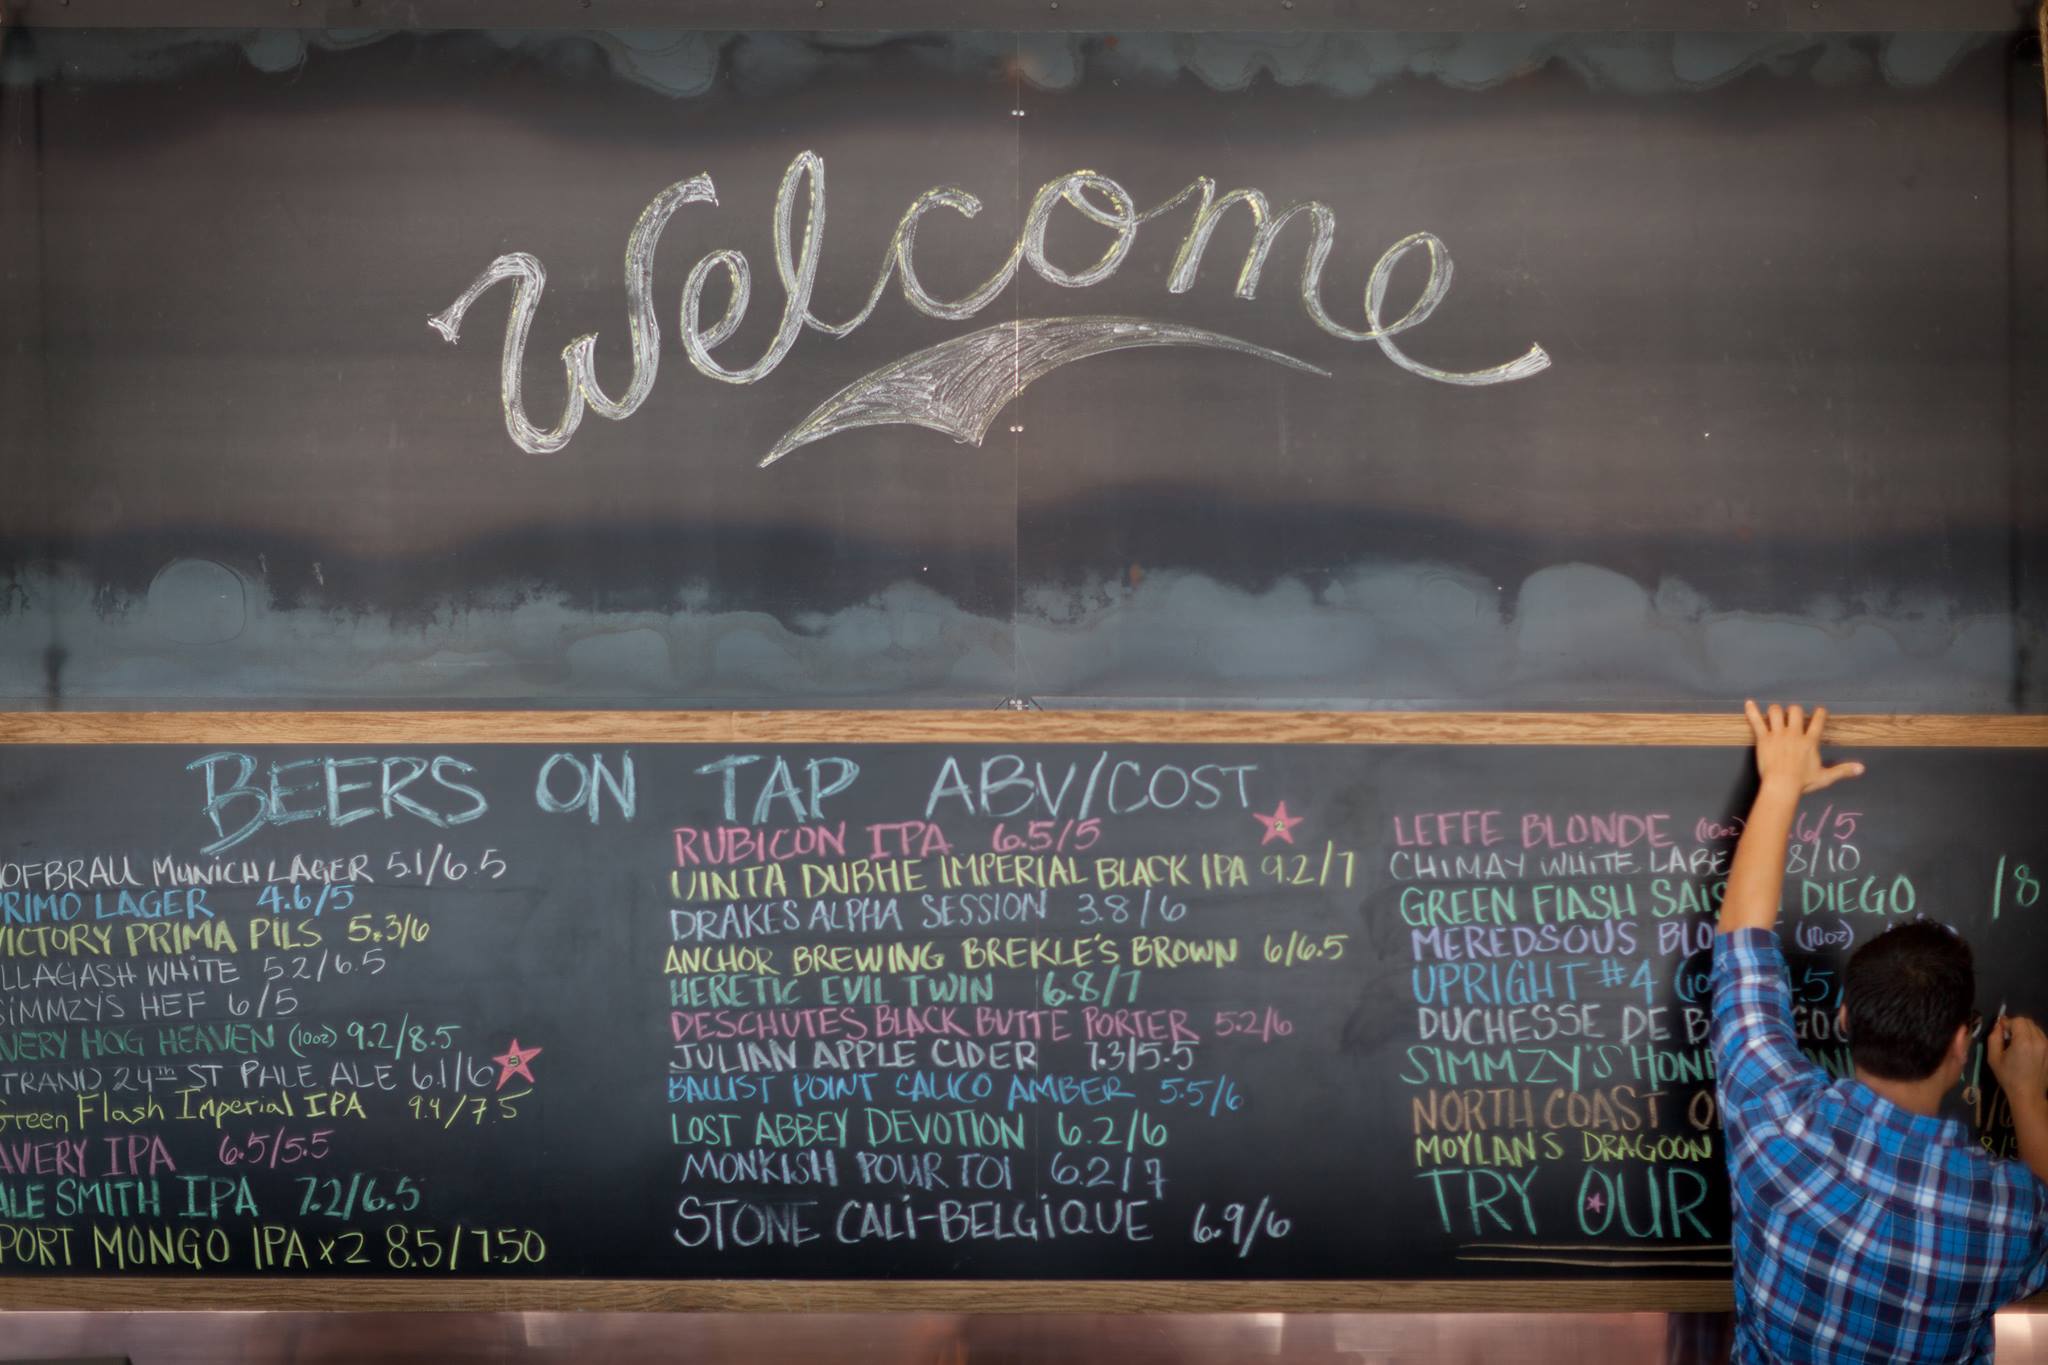 Welcome
BEERS ON TAP ABV/COST
OFBRAU MUNICH LAGER 5.1/6.5
PRIMO LAGER 4.6/5
VICTORY PRIMA PILS 5.3/6
LLAGASH WHITE 5.2/6.5
SIMMZY'S HEF 6/5
VERY HOG HEAVEN (10oz) 9.2/8.5
TRAND 24TH ST PALE ALE 6.1/6 3
Green Flash Imperial IPA 9.4/7.5
AVERY IPA 6.5/5.5
ALE SMITH IPA 7.2/6.5
PORT MONGO IPA x2 8.5/7.50
RUBICON IPA 6.5/5 2
UINTA DUBHE IMPERIAL BLACK IPA 9.2/7
DRAKES ALPHA SESSION 3.8/6
ANCHOR BREWING BREKLE'S BROWN 6/6.5
HERETIC EVIL TWIN 6.8/7
DESCHUTES BLACK BUTTE PORTER 5.2/6
JULIAN APPLE CIDER 7.3/5.5
BALLIST POINT CALICO AMBER 5.5/6
LOST ABBEY DEVOTION 6.2/6
MONKISH POUR TOI 6.2/7
STONE CALI-BELGIQUE 6.9/6
LEFFE BLONDE (10oz) .6/5
CHIMAY WHITE LABE 8/10
GREEN FLASH SAIS DIEGO /8
MEREDSOUS BLO (10oz)
UPRIGHT #4 (10 4.5/
DUCHESSE DE B GO
SIMMZY'S HON
NORTH COAST O 9/6
MOYLAN'S DRAGOON 8/5
TRY OUR